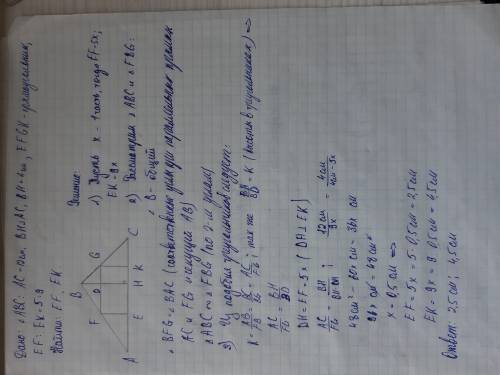 Дано: △ABC: AC = 12см, BH⊥AC, BH = 4см, EFGK - прямоугольник,
EF : EK = 5:9
Найти: EF, EK
Решение:
B
F D G
A E H K C
1) Пусть x - 1 часть, тогда EF = 5x;
EK = 9x
2) Рассмотрим △ABC и △FBG:
∠B - общий
∠BFG = ∠BAC (соответственные углы при параллельных прямых
AC и FG и секущей AB)
△ABC ~ △FBG (по 2-м углам)
3) Из подобия треугольников следует:
K = AB/FB = BC/BG = AC/FG ; так же BH/BD = K (высоты в треугольниках) ⟹
AC/FG = BH/BD
DH = EF = 5x (DH⊥EK)
AC/FG = BH/BH-DH ; 12см/9x = 4см/4см-5x
48см² - 60x см = 36x см
96x см = 48см²
x = 0,5см ⟹
EF = 5x = 5·0,5см = 2,5см
EK = 9x = 9·0,5см = 4,5см
Ответ: 2,5см; 4,5см